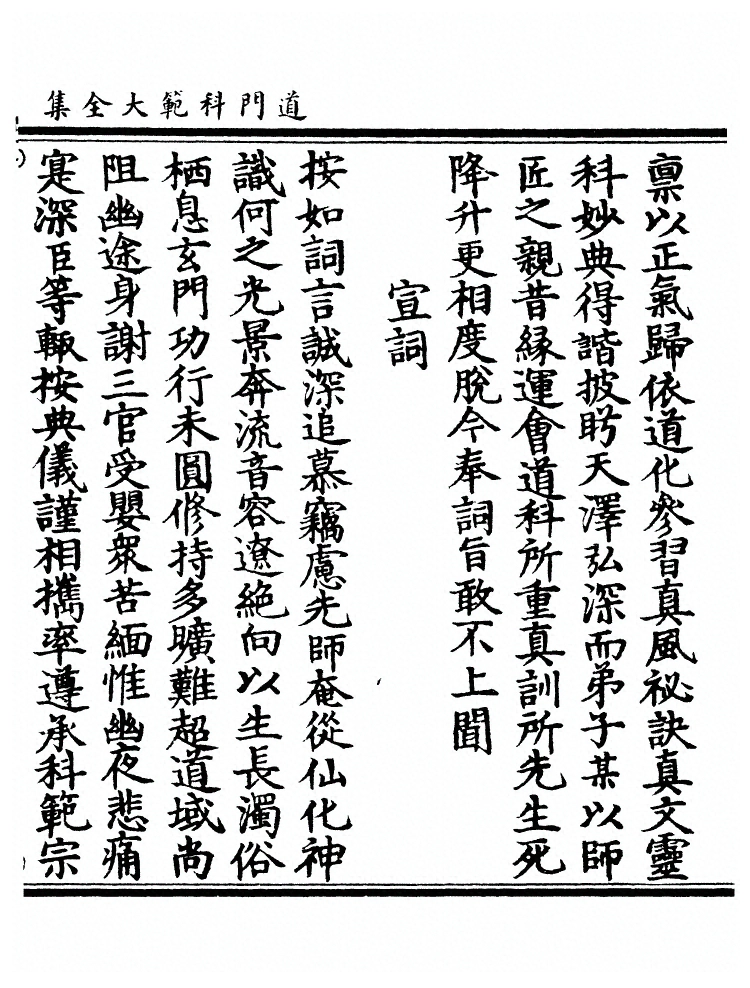 道門科範大全集
禀以正氣歸依道化參習真風祕訣真文靈
科妙典得諧披盻天澤弘深而弟子某以師
匠之親昔緣運會道科所重真訓所先生死
降升更相度脫今奉詞旨敢不上聞
宣詞
按如詞言誠深追慕竊慮先師奄從仙化神
識何之光景奔流音容遼絶向以生長濁俗
栖息玄門功行未圓修持多曠難超道域尚
阻幽途身謝三官受嬰衆苦緬惟幽夜悲痛
寔深臣等輙按典儀謹相攜率遵承科範宗